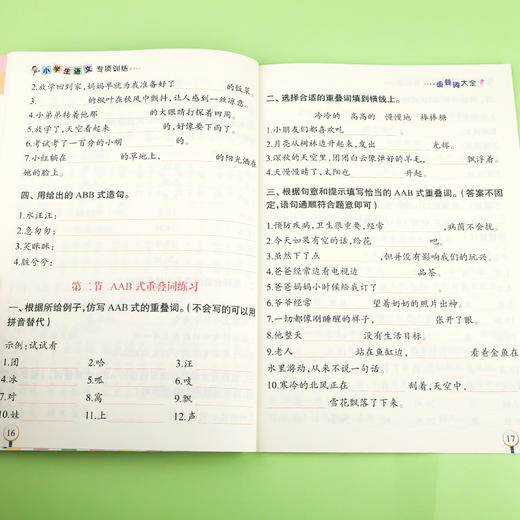 小学生语文 专项训练
2.放学回到家，妈妈早就为我准备好了的饭菜。
3.枫叶在秋风中颤抖，让人感到一丝凉意。
4.小弟弟转着他那的大眼睛打探着四周。
5.放学了，天空看起来，好像要下雨了。
6.考试考了一百分的小明。
7.小红躺在的草地上，的阳光洒在
她的脸上。
四、用给出的 ABB 式造句。
1.水汪汪：
2.急匆匆：
3.笑眯眯：
4.脏兮兮：
第二节 AAB 式重叠词练习
一、根据所给例子，仿写 AAB 式的重叠词。（不会写的可以用
拼音替代）
示例：试试看
1.团 2.哈 3.汪
4.冰 5.呱 6.吱
7.对 8.窝 9.飘
10.娃 11.上 12.声
16
重叠词大全
二、选择合适的重叠词填到横线上。
冷冷的 高高的 慢慢地 棒棒糖
1.小朋友们都喜欢吃。
2.月亮从树林边升起来，发出光辉。
3.深秋的天空里，团团白云像弹好的羊毛，飘浮着。
4.天慢慢晴了，太阳也升起。
三、根据句意和提示填写恰当的 AAB 式重叠词。（答案不固
定，语句通顺符合题意即可）
1.预防疾病，卫生很重要，经常，病菌不会扰。
2.今天如果有空的话，给花吧。
3.虽然下了点，但并没有影响我们的玩兴。
4.爸爸经常边看电视边品茶。
5.爸爸妈妈小时候给我订了。
6.爷爷经常望着奶奶的照片出神。
7.一切都像刚睡醒的样子，张开了眼。
8.他整天没有生活目标。
9.老人站在鱼缸边，看着金鱼在
水里游动，从来不说一句话。
10.寒冷的北风正在刮着，天空中，
雪花飘落了下来。
17